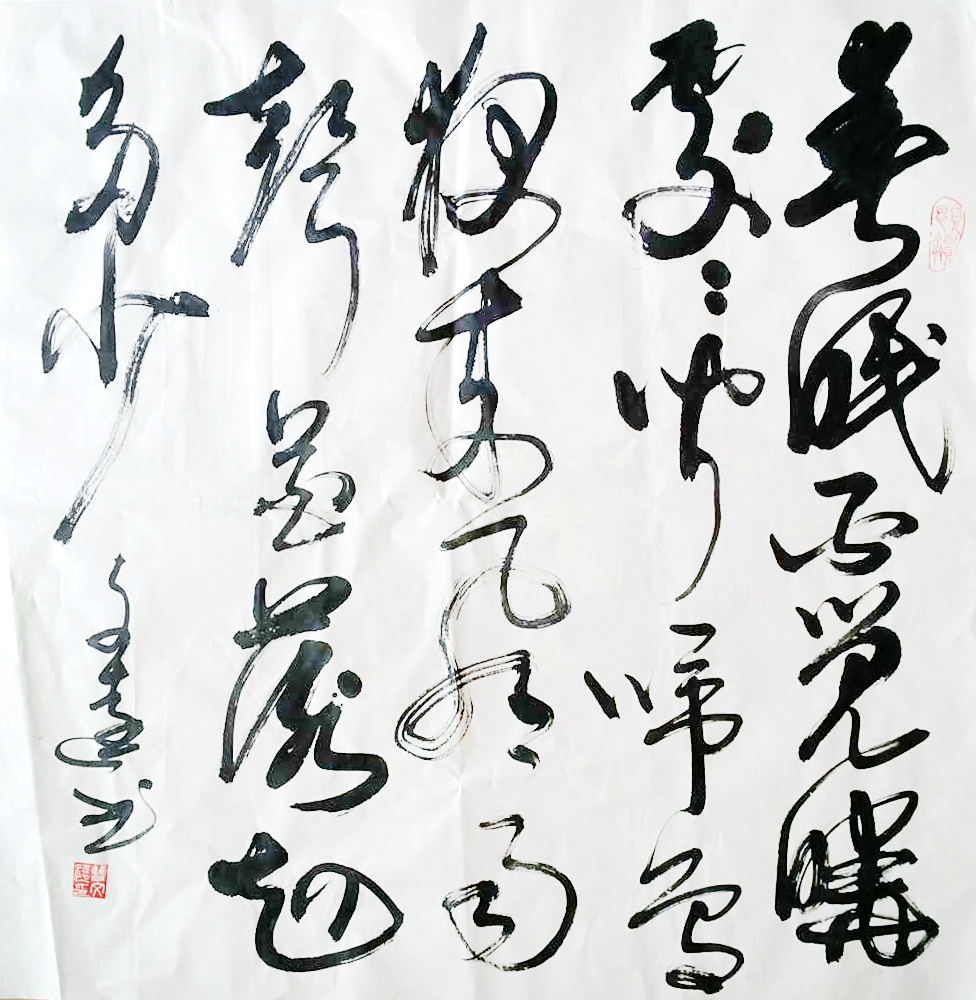 春眠不觉曉
處々闻啼鸟
夜来风雨
声花落知
多少